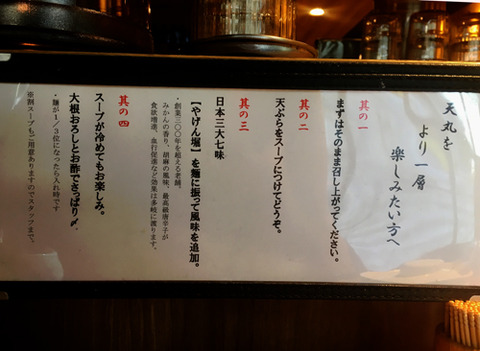 天丸を
より一層
楽しみたい方へ
其の一
まずはそのまま召し上がってください。
其の二
天ぷらをスープにつけてどうぞ。
其の三
日本三大七味
【やげん堀】を麺に振って風味を追加。
・創業三〇〇年を超える老舗。
みかんの香り、胡麻の風味、最高級唐辛子が
食欲増進、血行促進など効果は多岐に渡ります。
其の四
スープが冷めてもお楽しみ。
大根おろしとお酢でさっぱり〆。
・麺が1／3位になったら入れ時です
※割スープもご用意ありますのでスタッフまで。